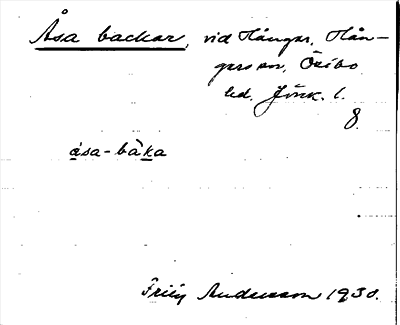 Åsa backar, vid Hånger, Hån-
gers sn, Östbo
hd. Jönk. l.
8.
åsa-bàka
Andersson 1930.